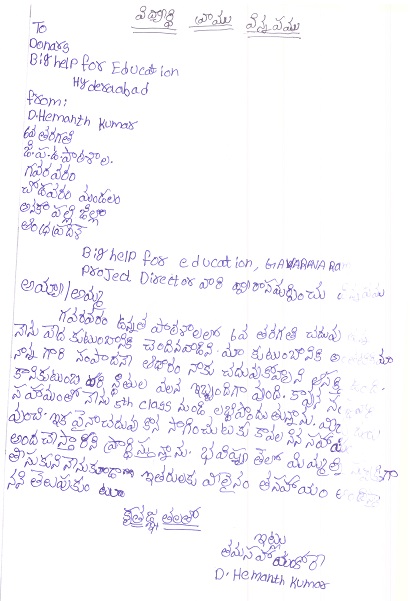 విద్యార్థి వాము విన్నపము
To
Donars
Bighelp for Education
Hyderaabad
from:
D.Hemanth Kumar
6వ తరగతి
జి.ప.ఉ పాఠశాల.
గవరవరం
చోడవరం మండలం
అనకాపల్లి జిల్లా
ఆంధ్రప్రదేశ్
Bighelp for education, GAWARAVARAM
Project Director వారి ద్వారా సమర్పించు
అయ్యా/అమ్మ
గవరవరం ఉన్నత పాఠశాలలో 6వ తరగతి చదువు
నాను పేద కుటుంబానికి చెందినవాడిని. మా కుటుంబానికి
నాన్న గారి సంపాదనే ఆధారం నాకు చదువుకోవాలని ఆసక్తి
కానికుటుంబ పరిస్థితుల వలన ఇబ్బందిగా వుంది. కావున
సహాయంతో నాను 5th class నుండి లబ్ధిపొందుతున్నాను. మీ
వుంది. ఇక పైనా చదువు కొన సాగించుటకు కావల సిన సహాయ
అందచేస్తారని ప్రార్థిస్తున్నాను. భవిష్యత్తులో
తీసుకుని నానుకూడా ఇతరులకు నాకైనం తసహాయం
నని తెలుపుకుం
కృతజ్ఞతలతో
ఇట్లు
తమసహాయంకోరే
D. Hemanth Kumar